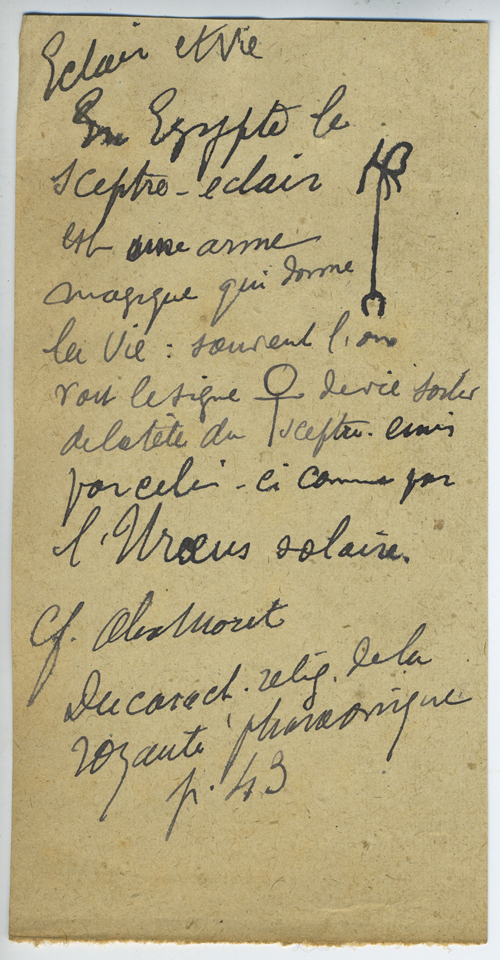 Eclair et Vie
En Egypte le
sceptre-eclair
est une arme
magique qui donne
la Vie : souvent l'on
voit le signe de vie sortir
de la tête du sceptre. emis
par celui-ci comme par
l'Uræus solaire.
Cf. Alex Moret
Du caract. relig. de la
royauté pharaonique
p. 43